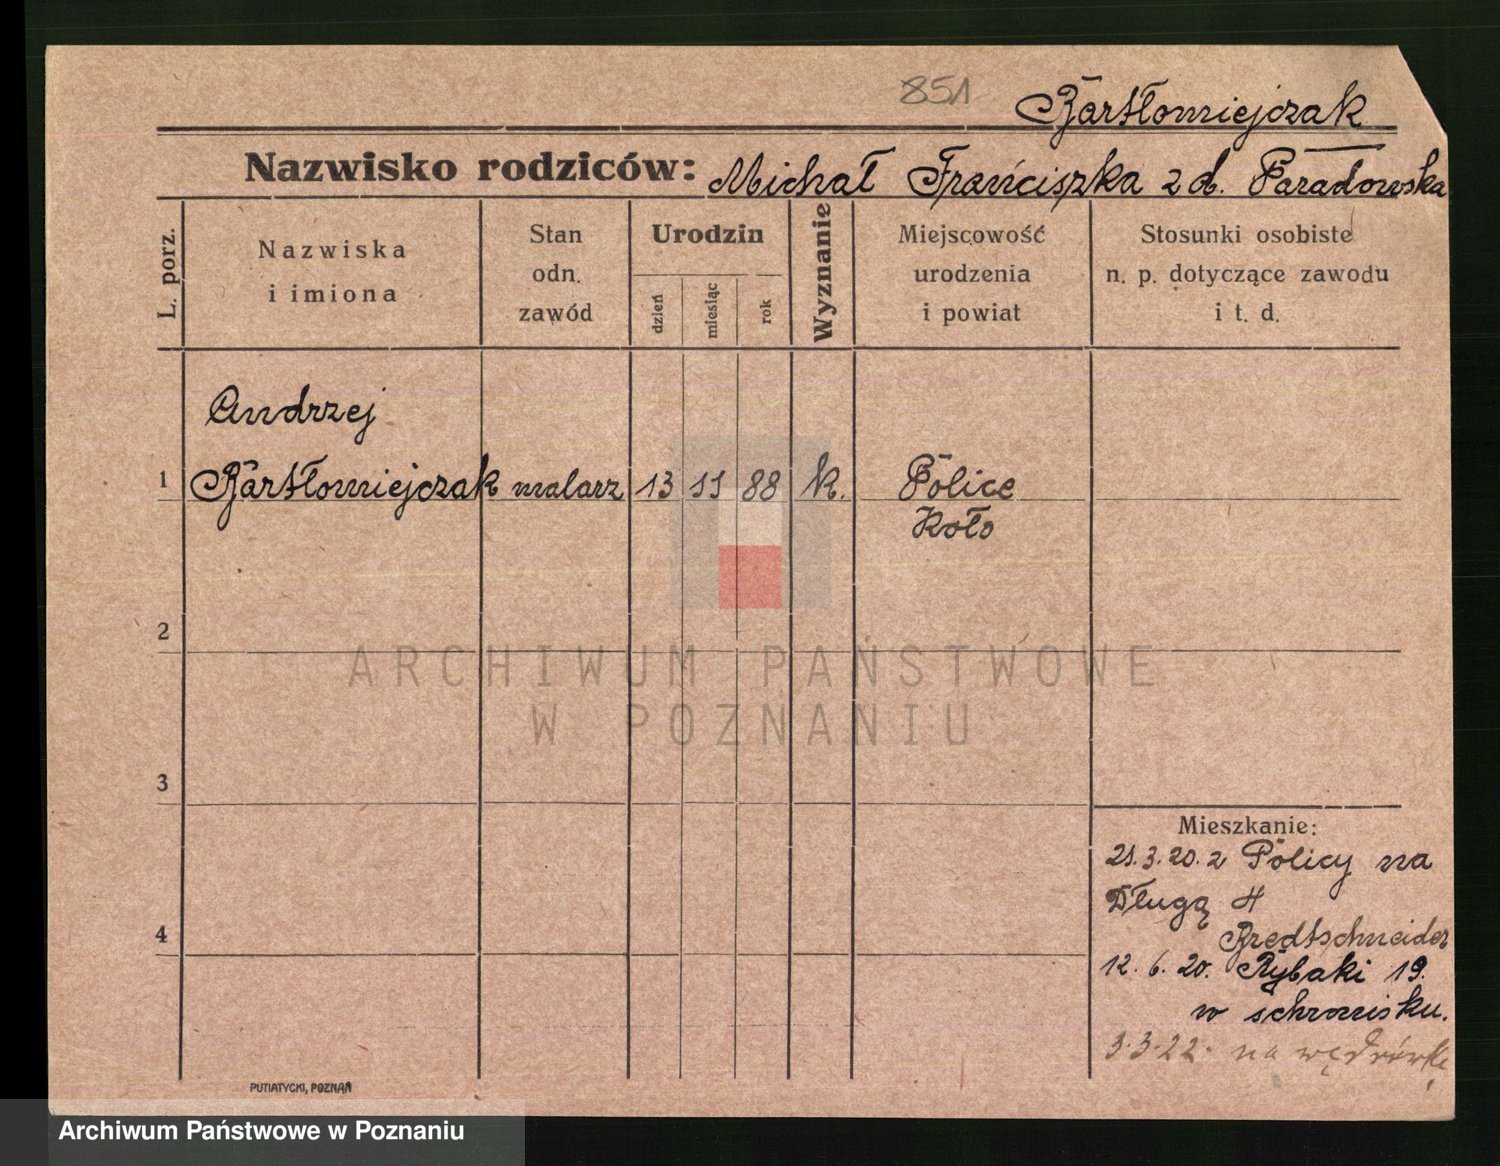 851
Bartłomiejczak
Nazwisko rodziców: Michał Franciszka z d. Paradowska
L. porz.
Nazwiska
i imiona
Stan
odn.
zawód
Urodzin
dzień
miesiąc
rok
Wyznanie
Miejscowość
urodzenia
i powiat
Stosunki osobiste
n. p. dotyczące zawodu
i t. d.
Andrzej
1 Bartłomiejczak malarz 13 11 88 k. Police
Koło
2
3
4
Mieszkanie:
21.3.20. z Policy na
Długą 4
Bredtschneider
12. 6. 20. Rybaki 19.
w schronisku.
3.3.22. na wędrówkę
PUTIATYCKI, POZNAŃ
ARCHIWUM PAŃSTWOWE
W POZNANIU
Archiwum Państwowe w Poznaniu